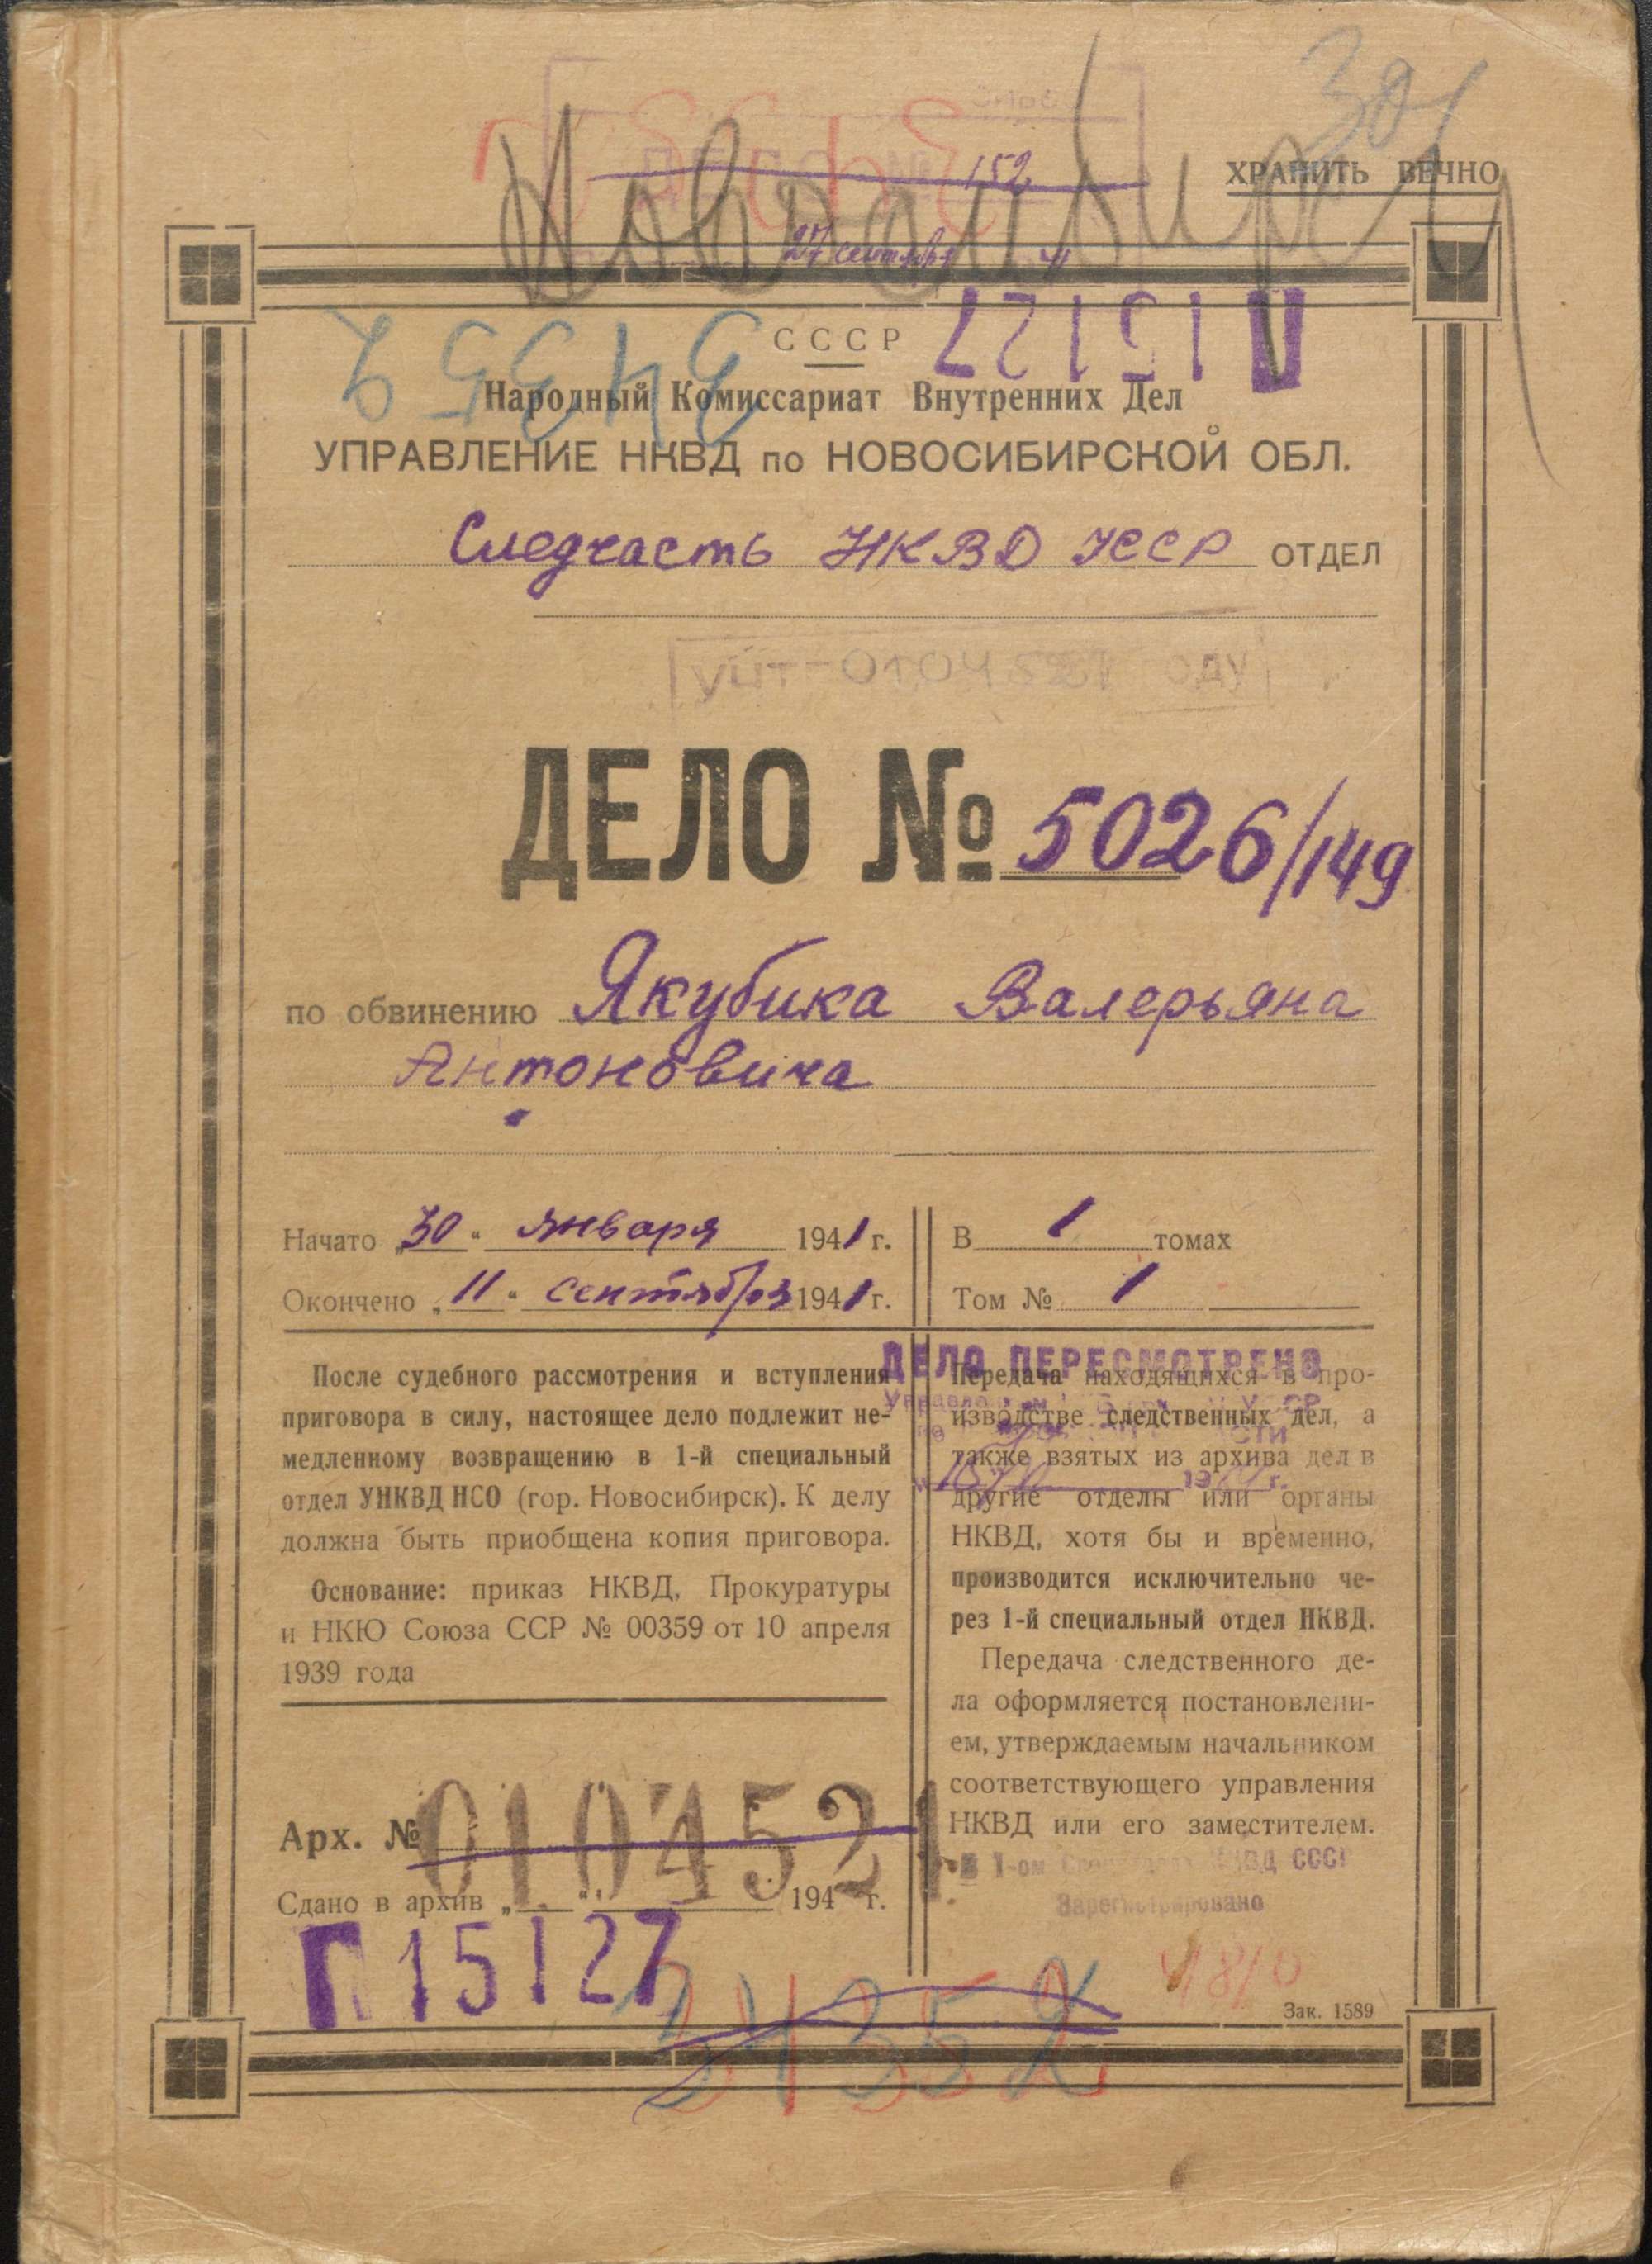 152
ХРАНИТЬ ВЕЧНО
27 сентября 41
СССР
П 15127
34352
Народный Комиссариат Внутренних Дел
УПРАВЛЕНИЕ НКВД по НОВОСИБИРСКОЙ ОБЛ.
Следчасть НКВД УССР ОТДЕЛ
ДЕЛО № 5026/149
по обвинению Якубика Валерьяна
Антоновича
Начато „30“ января 1941 г.
Окончено „11“ сентября 1941 г.
В 1 томах
Том № 1
После судебного рассмотрения и вступления
приговора в силу, настоящее дело подлежит не-
медленному возвращению в 1-й специальный
отдел УНКВД НСО (гор. Новосибирск). К делу
должна быть приобщена копия приговора.
Основание: приказ НКВД, Прокуратуры
и НКЮ Союза ССР № 00359 от 10 апреля
1939 года
ДЕЛО ПЕРЕСМОТРЕНО
Передача находящихся в про-
изводстве следственных дел, а
также взятых из архива дел в
другие отделы или органы
НКВД, хотя бы и временно,
производится исключительно че-
рез 1-й специальный отдел НКВД.
Передача следственного де-
ла оформляется постановлени-
ем, утверждаемым начальником
соответствующего управления
НКВД или его заместителем.
Арх. № 0104521
Сдано в архив „ “ 194 г.
Зарегистрировано
П 15127
34352
Зак. 1589